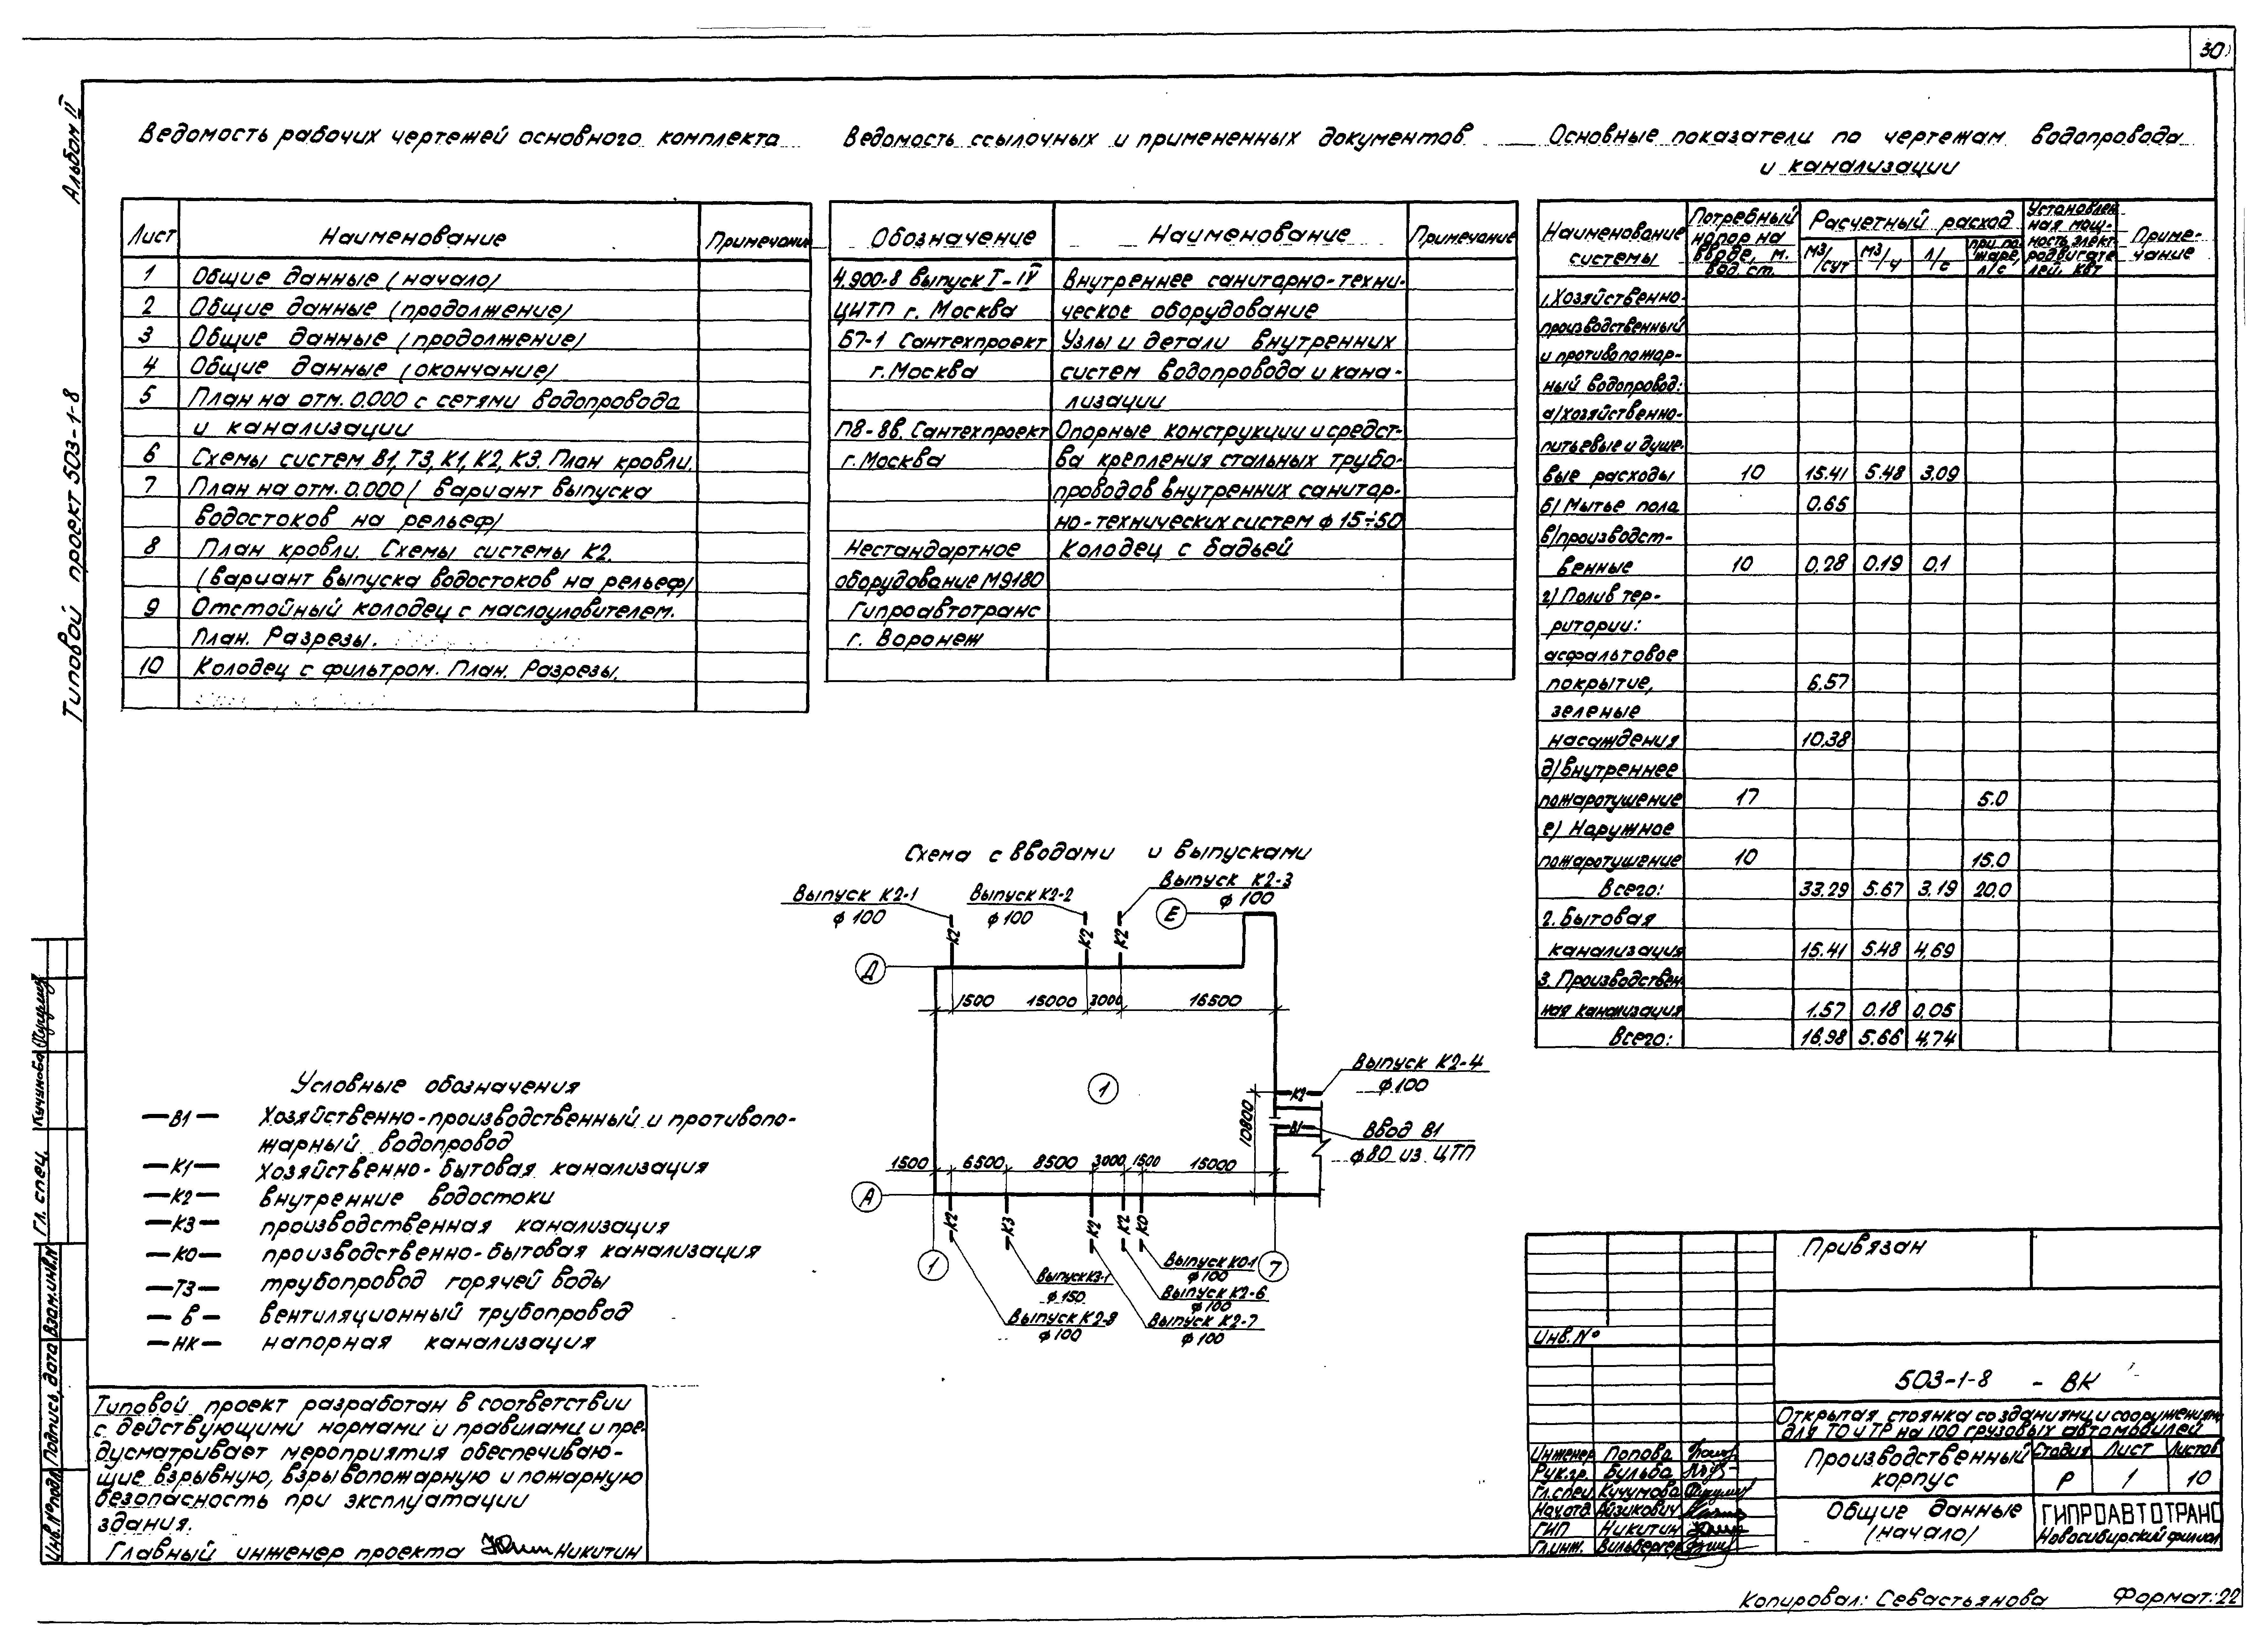 30
Альбом II
Типовой проект 503-1-8
Ведомость рабочих чертежей основного комплекта
Лист Наименование Примечание
1 Общие данные (начало)
2 Общие данные (продолжение)
3 Общие данные (продолжение)
4 Общие данные (окончание)
5 План на отм. 0.000 с сетями водопровода
и канализации
6 Схемы систем В1, Т3, К1, К2, К3. План кровли.
7 План на отм. 0.000 (вариант выпуска
водостоков на рельеф)
8 План кровли. Схемы системы К2.
(вариант выпуска водостоков на рельеф)
9 Отстойный колодец с маслоуловителем.
План. Разрезы.
10 Колодец с фильтром. План. Разрезы.
Ведомость ссылочных и примененных документов
Обозначение Наименование Примечание
4.900-8 выпуск I-IV Внутреннее санитарно-техни-
ЦИТП г. Москва ческое оборудование
Б7-1 Сантехпроект Узлы и детали внутренних
г. Москва систем водопровода и кана-
лизации
П8-8в. Сантехпроект Опорные конструкции и средст-
г. Москва ва крепления стальных трубо-
проводов внутренних санитар-
но-технических систем ф 15÷50
Нестандартное Колодец с бадьей
оборудование М9180
Гипроавтотранс
г. Воронеж
Основные показатели по чертежам водопровода
и канализации
Наименование системы
Потребный напор на вводе, м. вод. ст.
Расчетный расход
м3/сут м3/ч л/с при пожаре, л/с
Установленная мощность электродвигателей, квт
Приме-
чание
1. Хозяйственно-
производственный
и противопожар-
ный водопровод:
а) хозяйственно-
питьевые и душе-
вые расходы 10 15.41 5.48 3.09
б) Мытье пола 0.65
в) производст-
венные 10 0.28 0.19 0.1
г) Полив тер-
ритории:
асфальтовое
покрытие, 6.57
зеленые
насаждения 10.38
д) внутреннее
пожаротушение 17 5.0
е) Наружное
пожаротушение 10 15.0
Всего: 33.29 5.67 3.19 20.0
2. Бытовая
канализация 15.41 5.48 4,69
3. Производствен
ная канализация 1.57 0.18 0,05
Всего: 16.98 5.66 4,74
Схема с вводами и выпусками
Выпуск К2-1
ф 100
Выпуск К2-2
ф 100
Выпуск К2-3
ф 100
Е
К2 К2 К2
Д
1500 15000 3000 16500
1
Выпуск К2-4
ф 100
К2
10800
В1
Ввод В1
ф 80 из ЦТП
1500 6500 8500 3000 1500 15000
А
К2 К3 К2 К2 К0
1 7
Выпуск К0-1
ф 100
Выпуск К3-1
ф 150
Выпуск К2-6
ф 100
Выпуск К2-8
ф 100
Выпуск К2-7
ф 100
Условные обозначения
—В1— Хозяйственно-производственный и противопо-
жарный водопровод
—К1— Хозяйственно-бытовая канализация
—К2— внутренние водостоки
—К3— производственная канализация
—К0— производственно-бытовая канализация
—Т3— трубопровод горячей воды
—в— вентиляционный трубопровод
—НК— напорная канализация
Типовой проект разработан в соответствии
с действующими нормами и правилами и пре-
дусматривает мероприятия обеспечиваю-
щие взрывную, взрывопожарную и пожарную
безопасность при эксплуатации
здания.
Главный инженер проекта Никитин
Гл. спец. Кучумова
Инв. № подл. Подпись, дата Взам. инв. №
Привязан
Инв. №
503-1-8 - ВК
Открытая стоянка со зданиями и сооружениями
для ТО и ТР на 100 грузовых автомобилей
Инженер Попова
Рук. гр. Бульба
Гл. спец Кучумова
Нач. отд. Айзикович
ГИП Никитин
Гл. инж. Вильбергер
Производственный
корпус
Стадия Лист Листов
Р 1 10
Общие данные
(начало)
ГИПРОАВТОТРАНС
Новосибирский филиал
Копировал: Севастьянова Формат: 22